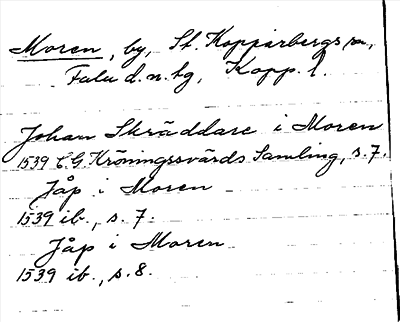 Moren, by, St. Kopparbergs sn,
Falu d.n. tg, Kopp. l.
Johan Skräddare i Moren
1539 C.G. Kröningssvärds Samling, s. 7.
Jåp i Moren
1539 ib., s. 7.
Jåp i Moren
1539 ib., s. 8.